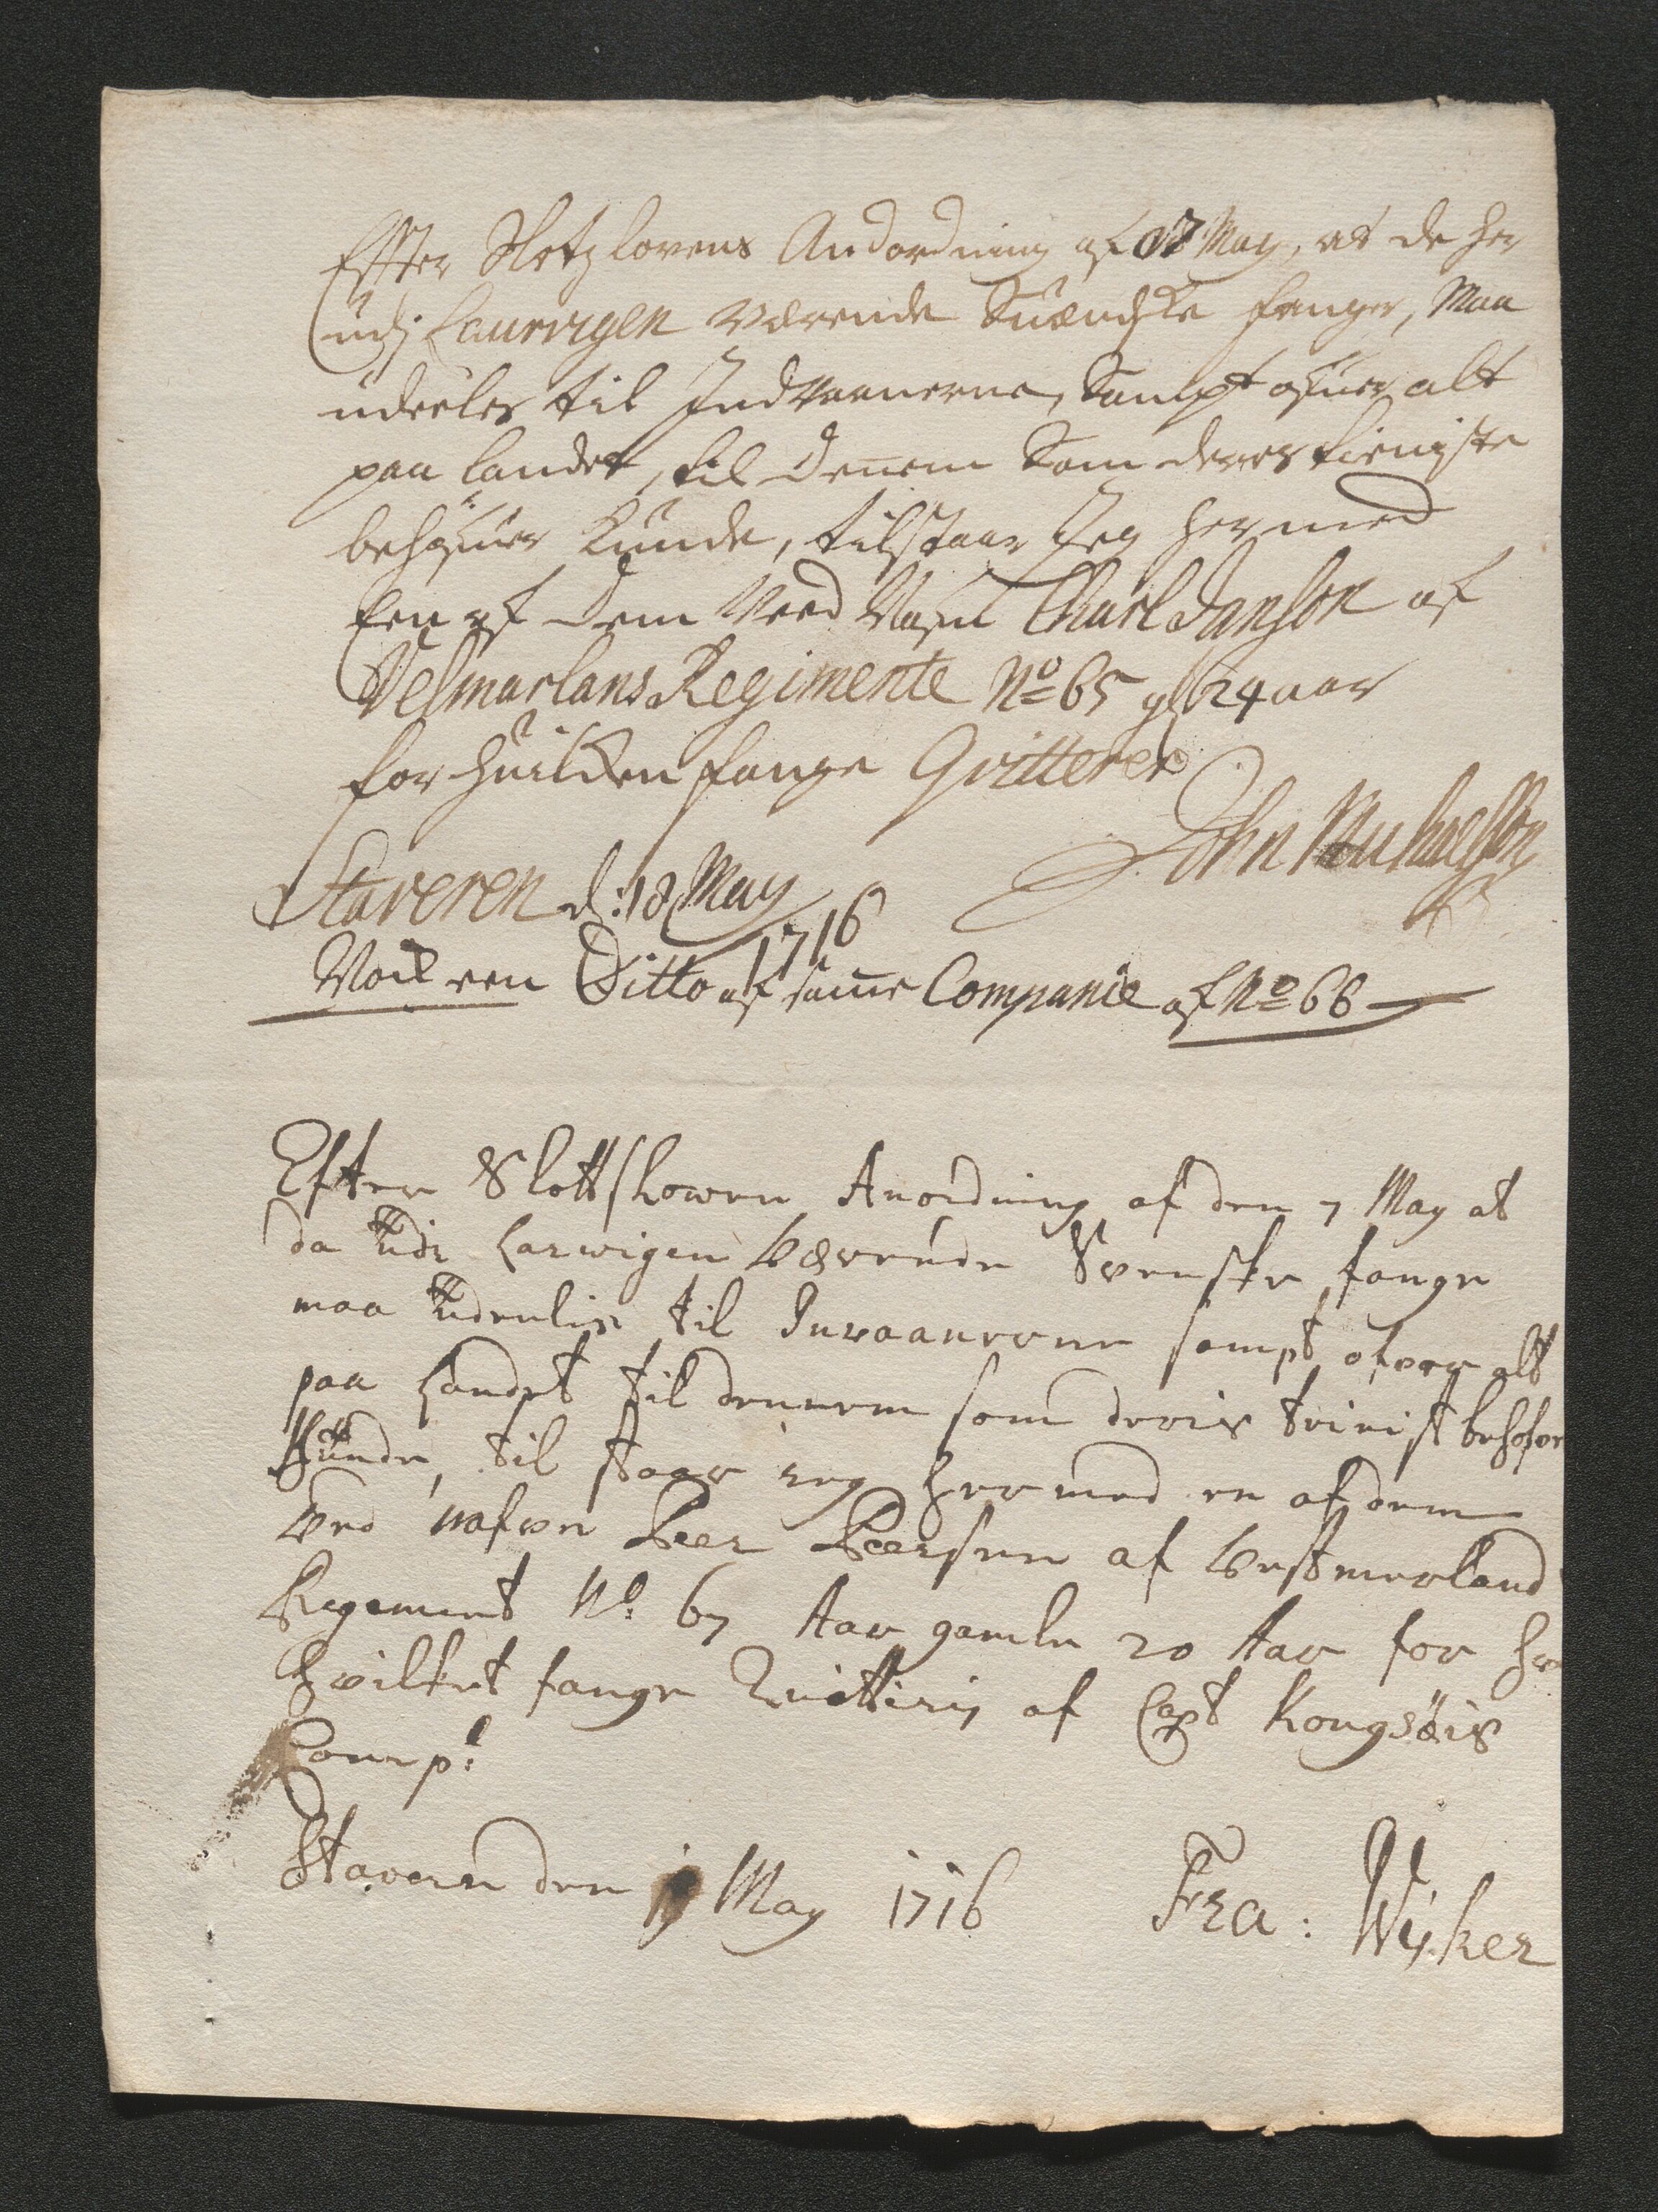 Effter Slotzlovens Andordning af 17 May, at de her
udj Laurvigen værende Suændske fanger, Maa
udeeles til Indvaanerne, Sampt ofuer alt
paa landet, til Dennem Som deres tienniste
behøfuer Kunde, tilstaar Jeg hermed
Een af dem Ved Nafn Charl Janson af
Vesmarlans Regimente No 65 gl 24 aar
for huilken fange Qvitterer
John Michaelsson
Staveren d: 18 May
1716
Nock een Ditto af samme Companie af No 66
Efter Slottsloven Anordning af den 7 May at
da udi Larwigen Værende Svenske fange
maa udeelis til Invaanerne sampt ofver alt
paa Landet til dennem som deris tienist behøfver
Kunde, til staar ieg hermed en af dem
ved nafvn Peer Peersen af Vestmerland
Regement No: 67 Aar gamle 20 Aar for
hvilket fange Quitteris af Capt Kongsöis
Comp:
Stavern den 19 May 1716
Fra: Wijker